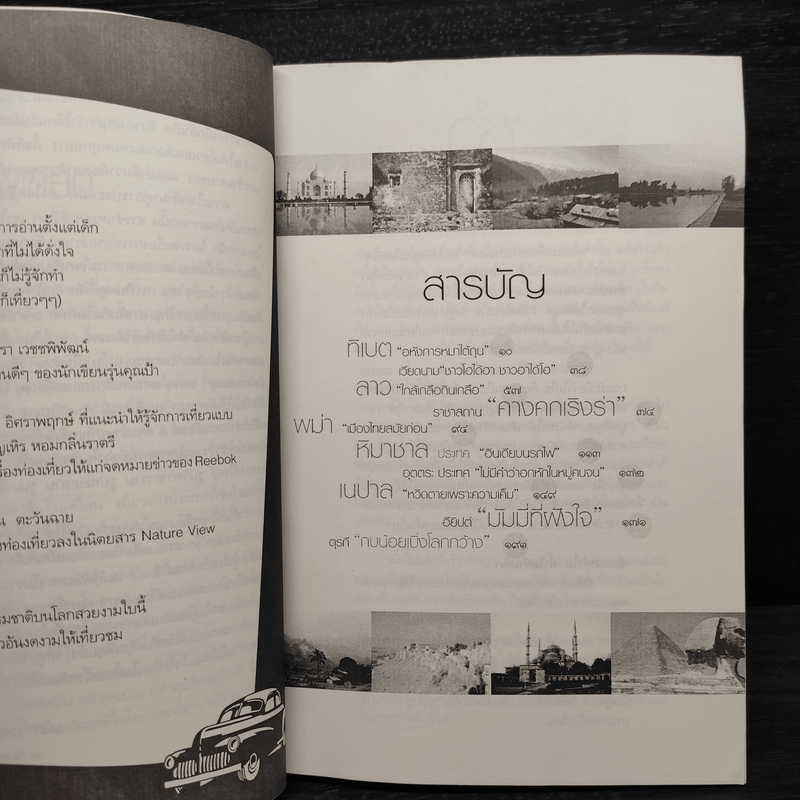 การอ่านตั้งแต่เด็ก
ที่ไม่ได้ตั้งใจ
ก็ไม่รู้จักทำ
ก็เที่ยวๆๆ)
รา เวชชพิพัฒน์
นดีๆ ของนักเขียนรุ่นคุณป้า
อิศราพฤกษ์ ที่แนะนำให้รู้จักการเที่ยวแบบ
ญูเหิร หอมกลิ่นราตรี
รื่องท่องเที่ยวให้แก่จดหมายข่าวของ Reebok
น ตะวันฉาย
งท่องเที่ยวลงในนิตยสาร Nature View
รมชาติบนโลกสวยงามใบนี้
วอันงดงามให้เที่ยวชม
สารบัญ
ทิเบต “อหังการหมาใต้ถุน” ๑๐
เวียดนาม “ชาวโฮได้ฮา ชาวฮาได้โฮ” ๓๘
ลาว “ใกล้เกลือกินเกลือ” ๕๗
ราชาสถาน “คางคกเริงร่า” ๗๔
พม่า “เมืองไทยสมัยก่อน” ๙๔
หิมาชาล ประเทศ “อินเดียบนรถไฟ” ๑๑๓
อุตตระ ประเทศ “ไม่มีคำว่าอกหักในหมู่คนจน” ๑๓๒
เนปาล “หวิดตายเพราะความเค็ม” ๑๔๙
อียิปต์ “มัมมี่ที่ฝังใจ” ๑๗๑
ตุรกี “กบน้อยเบิ่งโลกกว้าง” ๑๙๑